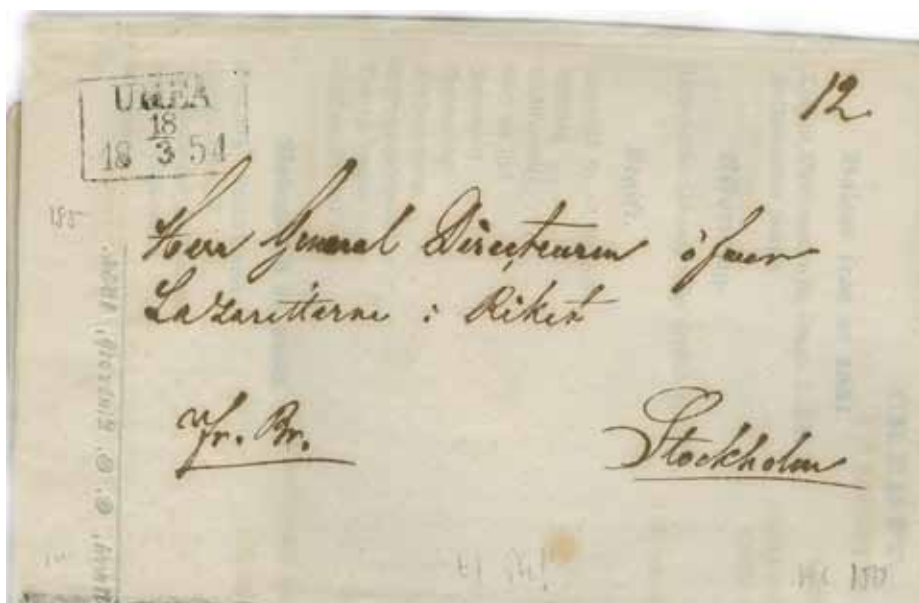 UMEÅ
18
18 3 54
12
Herr General Directeuren öfver
Lazaretterne i Riket
Fr. Br.
Stockholm